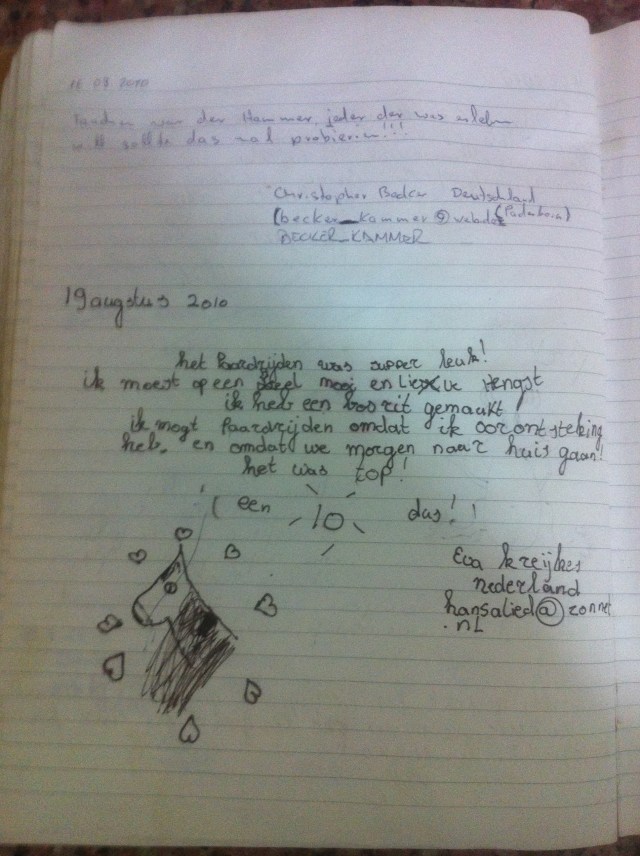 16 08 2010
Tauchen war der Hammer, jeder der was erleben
will sollte das mal probieren!!!
Christopher Becker Deutschland
(becker_kammer@web.de (Paderborn)
BECKER_KAMMER
19 augustus 2010
het Paardrijden was supper leuk!
ik moest op een heel mooi en lieve Hengst
ik heb een bosrit gemaakt!
ik mogt Paardrijden omdat ik oorontsteking
heb. en omdat we morgen naar huis gaan!
het was top!
( een 10 dus!!
Eva kreijkes
nederland
hansalied@zonnet
.nl